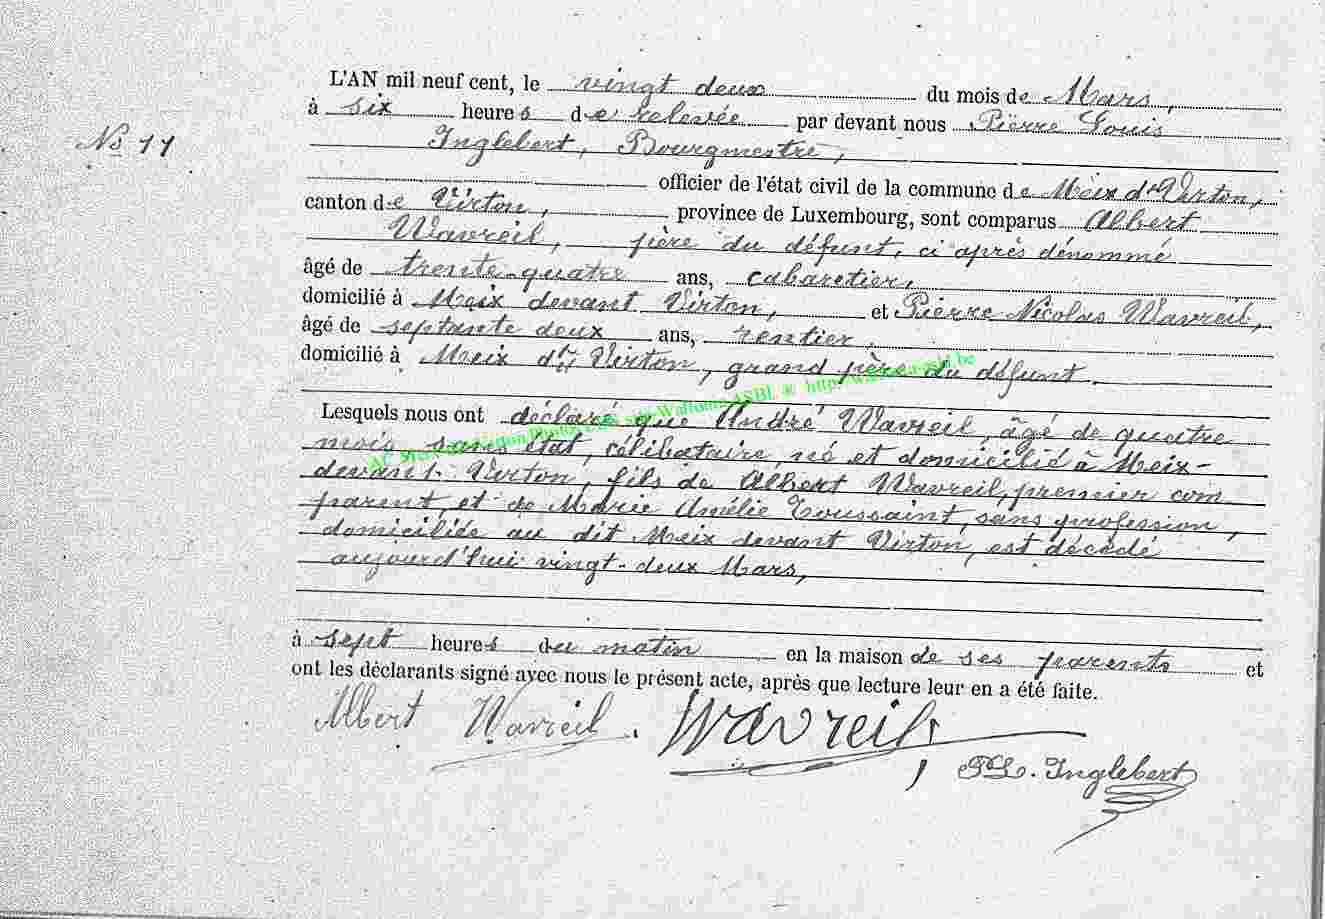 L'AN mil neuf cent, le vingt deux du mois de Mars,
à six heures de relevée par devant nous Pierre Louis
No 11
Inglebert, Bourgmestre,
officier de l'état civil de la commune de Meix dt Virton,
canton de Virton, province de Luxembourg, sont comparus Albert
Wavreil, père du défunt, ci après dénommé
âgé de trente-quatre ans, cabaretier,
domicilié à Meix devant Virton, et Pierre Nicolas Wavreil,
âgé de septante deux ans, rentier,
domicilié à Meix dt Virton, grand père du défunt.
Lesquels nous ont déclaré que André Wavreil, âgé de quatre
mois, sans état, célibataire, né et domicilié à Meix-
devant-Virton, fils de Albert Wavreil, premier com
parent, et de Marie Amélie Toussaint, sans profession,
domiciliée au dit Meix devant Virton, est décédé
aujourd'hui vingt-deux Mars,
à sept heures du matin en la maison de ses parents et
ont les déclarants signé avec nous le présent acte, après que lecture leur en a été faite.
Albert Wavreil. Wavreil,
PL. Inglebert